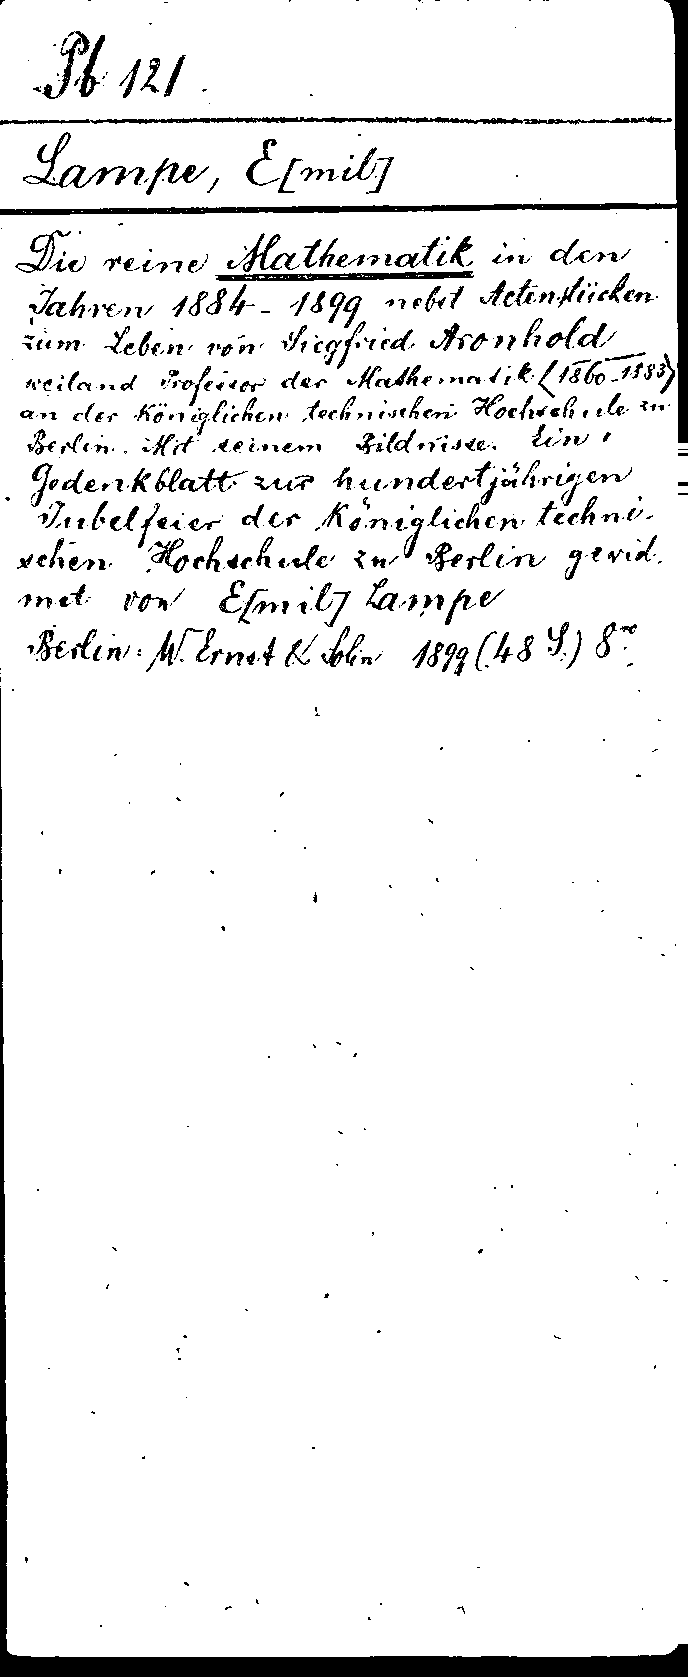 Pb 121.
Lampe, E[mil]
Die reine Mathematik in den
Jahren 1884-1899 nebst Actenstücken
zum Leben von Siegfried Aronhold
weiland Professor der Mathematik (1860-1883)
an der Königlichen technischen Hochschule zu
Berlin. Mit seinem Bildnisse. Ein
Gedenkblatt zur hundertjährigen
Jubelfeier der Königlichen techni-
schen Hochschule zu Berlin gewid-
met von E[mil] Lampe
Berlin: W. Ernst & Sohn 1899 (48 S.) 8vo